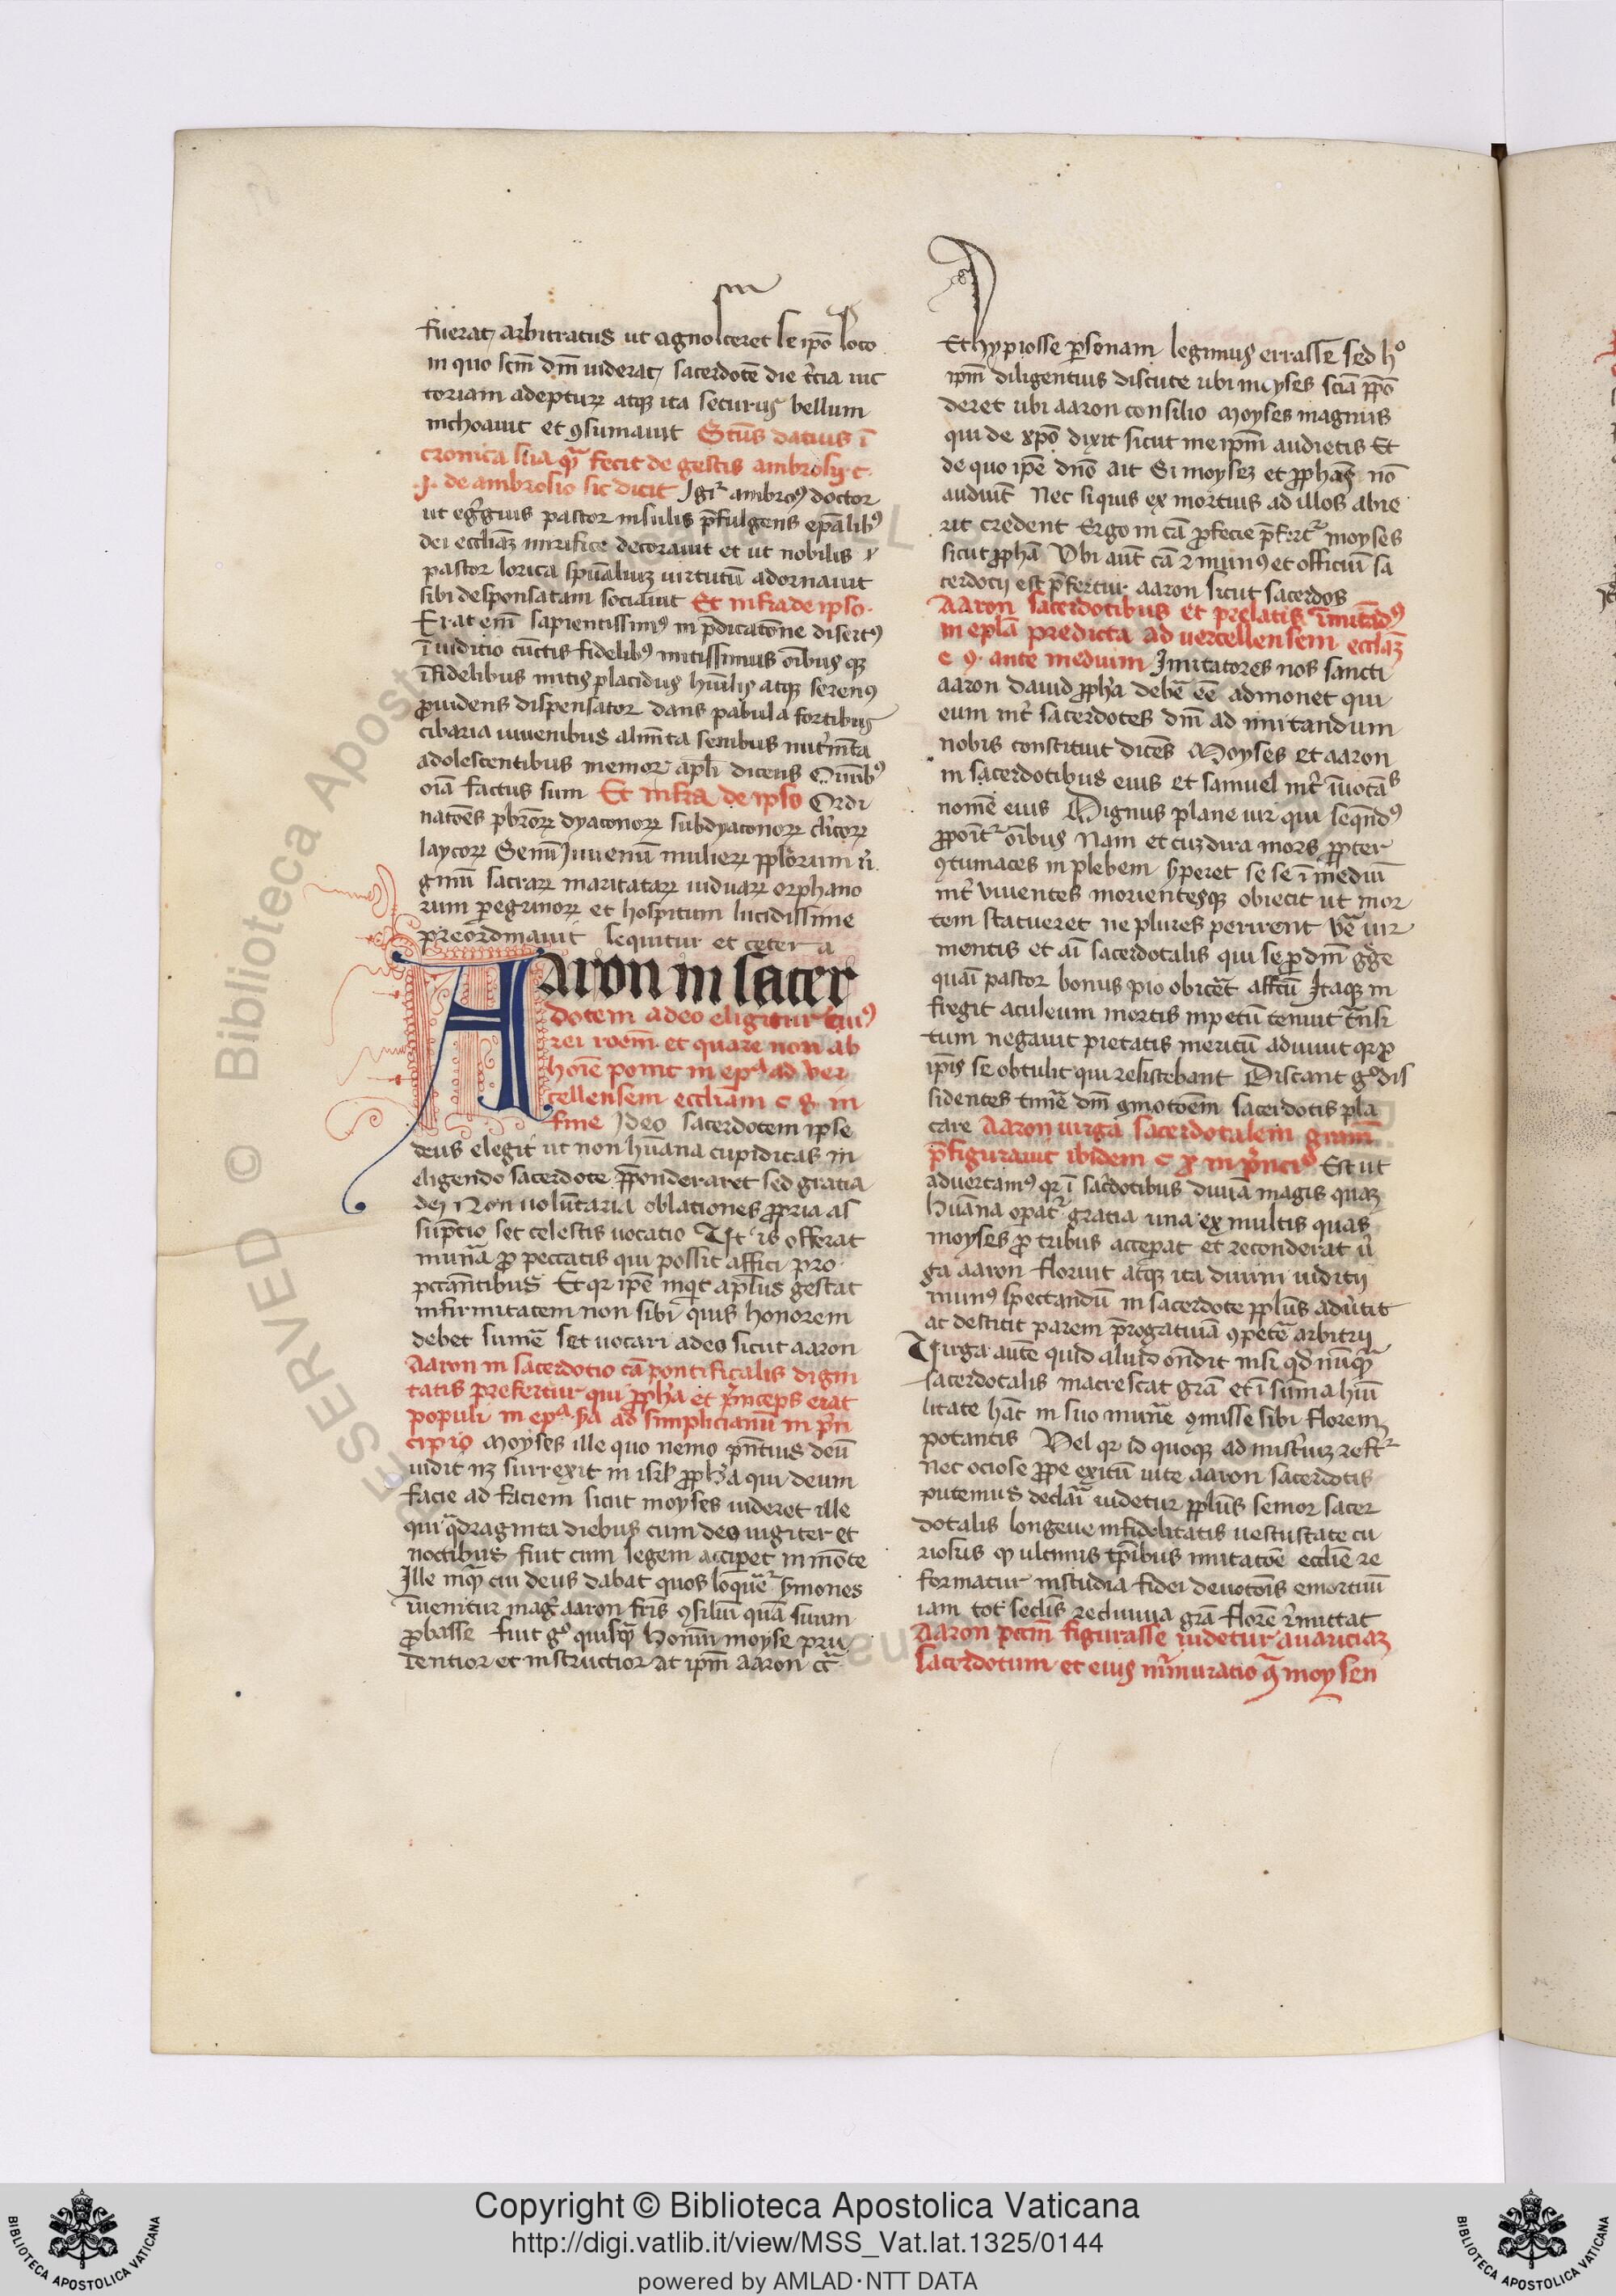 fuerat arbitratus ut agnosceret se ip̄o loco
in quo sc̄m dm̄ uiderat sacerdotē die t̄cia uic
toriam adepturꝝ atqꝫ ita securus bellum
inchoauit et ꝯsumauit Sc̄us datius ī
cronica sua quā fecit de gestis ambrosij c
.j. de ambrosio sic dicit Igit̉ ambroꝰ doctor
ut eg̉gius pastor insulis p̄fulgens epāl̄ibꝰ
dei eccl̄iaꝫ mirifice decorauit et ut nobilis
pastor lorica sp̄ualiuꝫ uirtutū adornauit
sibi desponsatam sociauit Et infra de ipso
Erat em̄ sapientissimꝰ in p̄dicatōne disertꝰ
ī iuditio cūctis fidelibꝰ mitissimus oībus qꝫ
īfidelibus mitis placidus hūilis atqꝫ serenꝰ
ꝓuidens dispensator dans pabula fortibus
cibaria iuuenibus alim̄ta senibus nut̉mēta
adolescentibus memor apl̄i dicens Om̄ibꝰ
oīa factus sum Et infra de ipso Ordi
natōes pbr̄orꝝ dyaconorꝝ subdyaconorꝝ cl̉icorꝝ
laycorꝝ Senū Iuuenū mulierꝝ ppl̄orum ū
ginū sacrarꝝ maritatarꝝ uiduarꝝ orphano
rum peregrinorꝝ et hospitum lucidissime
preordinauit sequitur et cetera
Aaron in sacer
dotem a deo eligitur cuiꝰ
rei roēm et quare non ab
hoīe ponit in epᵃ ad ver
cellensem eccl̄iam c 8 in
fine Ideo sacerdotem ipse
deus elegit ut non hūana cupiditas in
eligendo sacerdote p̄ponderaret sed gratia
dei Non uolūtaria oblationes ꝓpria as
sūptio set celestis uocatio Ut is offerat
munā ꝓ peccatis qui possit affici pro
pccāntibus Et qꝛ ipē inqt apl̄us gestat
infirmitatem non sibi quis honorem
debet sumē̉ set uocari a deo sicut aaron
Aaron in sacerdotio cā pontificalis digni
tatis prefertur qui ꝓph̄a et p̉nceps erat
populi in epᵃ sᵃ ad simplicianū in p̉n
cipio Moyses ille quo nemo p̄ntius deū
uidit nꝫ surrexit in isrl̄ ꝓph̄a qui deum
facie ad faciem sicut moyses uideret ille
qui qᵃdraginta diebus cum deo iugiter et
noctibus fuit cum legem acciperet in mōte
Ille inqᵃ cui deus dabat quos loqueret̉ sermones
īuenitur mag̉ aaron fr̄is ꝯsiliū quā suum
ꝓbasse fuit gᵒ quisqᵃ hoīm moyse pru
dentior et instructior at ip̄m aaron cᵒ̄
Ethypiosse personam legimus errasse sed hᵒ
ip̄m diligentius discute ubi moyses sciā p̄pō
deret ubi aaron consilio Moyses magnus
qui de xp̄o dixit sicut me ip̄m audietis Et
de quo ipē dn̄s ait Si moyseꝫ et ꝓph̄as nō
audiūt Nec si quis ex mortuis ad illos abie
rit credent Ergo in cā ꝓfecie p̄fert̉ moyses
sicut ꝓph̄a Vbi aūt cā ⁊ munꝰ et officiū sa
cerdocij est p̄fertur aaron sicut sacerdos
Aaron sacerdotibus et prelatis īmitādꝰ
in epl̄a predicta ad uercellensem eccl̄iaꝫ
c 9. ante medium Imitatores nos sancti
aaron dauid ꝓph̄a debē̉ eē̄ admonet qui
eum int̉ sacerdotes dm̄ ad imitandum
nobis constituit dicēs Moyses et aaron
in sacerdotibus eius et samuel int̉ īuocātˢ
nomē eius Dignus plane uir qui seqn̄dꝰ
ꝓpoīt̉ oībus Nam et cuꝫ dira mors ꝓpter
ꝯtumaces in plebem sꝑeret se se ī mediū
int̉ viuentes morientesqꝫ obiecit ut mor
tem statueret ne plures perirent vē̉ uir
mentis et aī sacerdotalis qui se ꝓ dm̄ gḡe
quaī pastor bonus pio obicē̉t affcū Itaqꝫ in
fregit aculeum mortis inpetū tenuit tᵃnsi
tum negauit pietatis meritū adiuuit qꝛ ꝓ
ip̄is se obtulit qui resistebant Discant gᵒ dis
sidentes timē̉ dm̄ ꝯmotōem sacerdotis pla
care Aaron uirga sacerdotalem grām
p̄figurauit ibidem c x in p̉ncipᵒ Est ut
aduertamꝰ qꝛ ī sac̉dotibus diuīa magis quaꝫ
hūana opat̉ gratia una ex multis quas
moyses ꝓ tribus acceperat et reconderat ū
ga aaron floruit atqꝫ ita diuini iuditij
munꝰ spectandū in sacerdote ppl̄us adūtit
ac destitit parem p̄rogatiuā ꝯpetē̉ arbitrij
Uirga autē quid aliud on̄dit nisi qđ nūqᵃ
sacerdotalis marescat grā et ī sum̄a hūi
litate hāt in suo munē̉ ꝯmisse sibi florem
potantis Vel qꝛ id quoqꝫ ad mist̉iuꝫ reft̉
nec ociose ꝓpe exitū uite aaron sacerdotis
putemus declaratū uidetur ppl̄us senior sacer
dotalis longeue infidelitatis uestustate cu
riosus qꝫ ultimis tp̄ibus imitatōe eccl̄ie re
formatur in studia fidei deuotōis emortuū
iam tot seclis rediuiua grā florē ꝛmittat
Aaron pccm̄ figurasse uidetur auariciaꝫ
sacerdotum et eius m̉muratio qᵃ moysen
Copyright © Biblioteca Apostolica Vaticana
http://digi.vatlib.it/view/MSS_Vat.lat.1325/0144
powered by AMLAD·NTT DATA
BIBLIOTECA APOSTOLICA VATICANA
BIBLIOTECA APOSTOLICA VATICANA